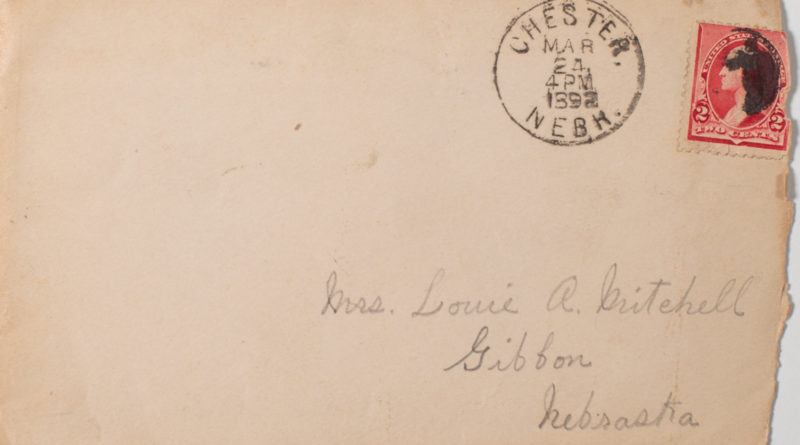 CHESTER,
MAR
24
4PM
1892
NEBR.
UNITED STATES POSTAGE
2 2
TWO CENTS
Mrs. Louie A. Mitchell
Gibbon
Nebraska